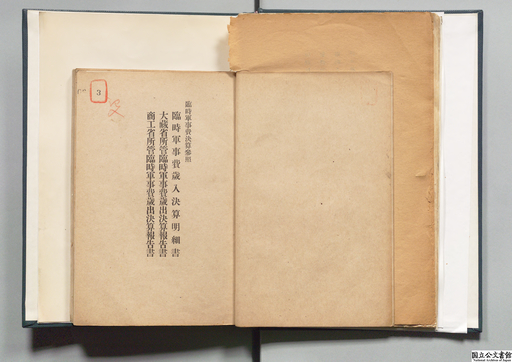 臨時軍事費決算參照
臨時軍事費歳入決算明細書
大藏省所管臨時軍事費歳出決算報告書
商工省所管臨時軍事費歳出決算報告書
3
国立公文書館
National Archives of Japan